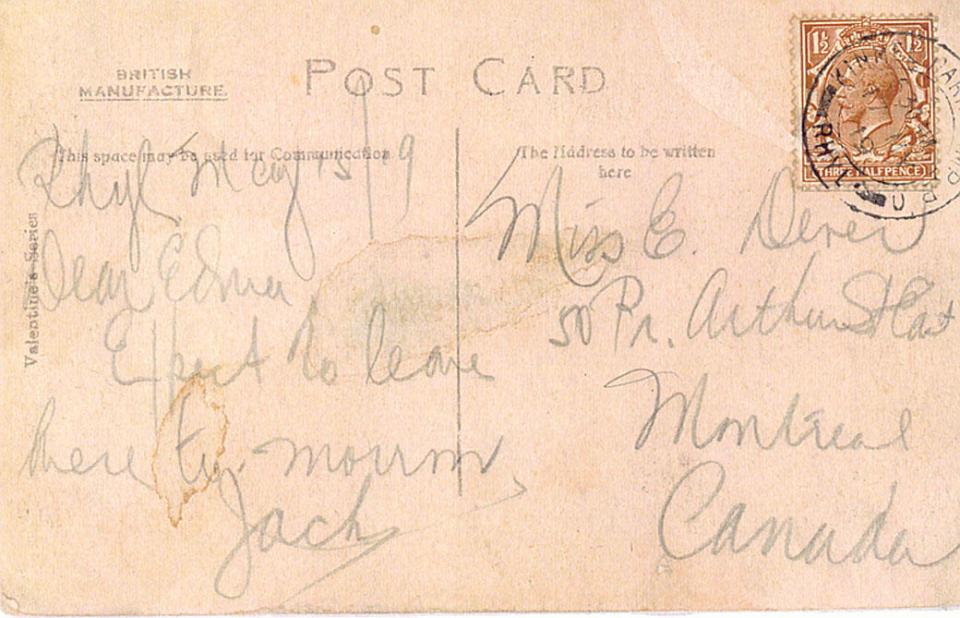 BRITISH
MANUFACTURE.
POST CARD
This space may be used for Communication
The Address to be written
here
Valentine's Series
1½ 1½
THREE HALFPENCE
KINMEL
RHYL
Rhyl May 15/19
Dear Edna
Expect to leave
here
Jack
Miss E.
50 Pr. Arthur St East
Montreal
Canada